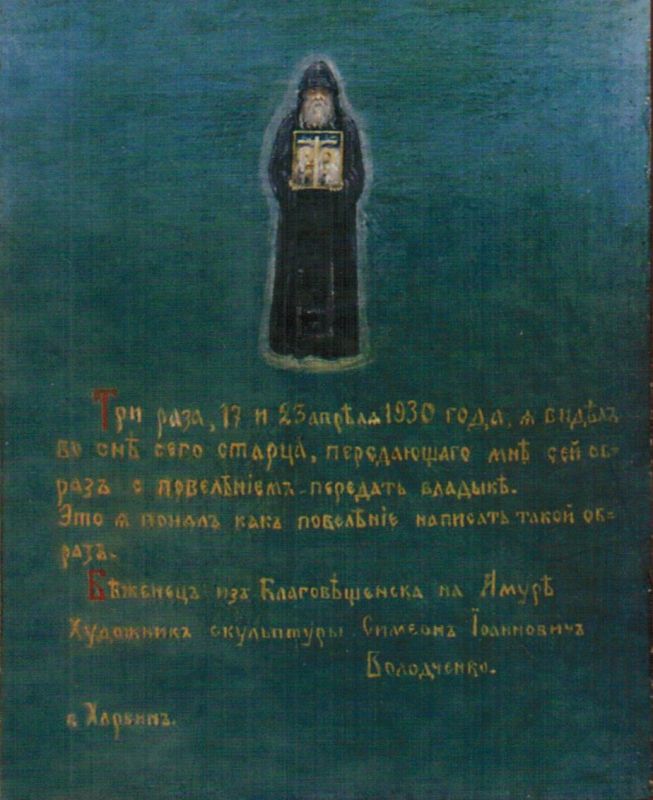 Три раза, 17 и 23 апрѣля 1930 года, я видѣлъ
во снѣ сего старца, передающаго мнѣ сей об-
разъ с повелѣніемъ передать владыкѣ.
Это я понялъ какъ повелѣніе написать такой об-
разъ.
Бѣженецъ изъ Благовѣщенска на Амурѣ
Художникъ скульптуры Симеонъ Іоанновичъ
Болодченко.
в Харбинъ.